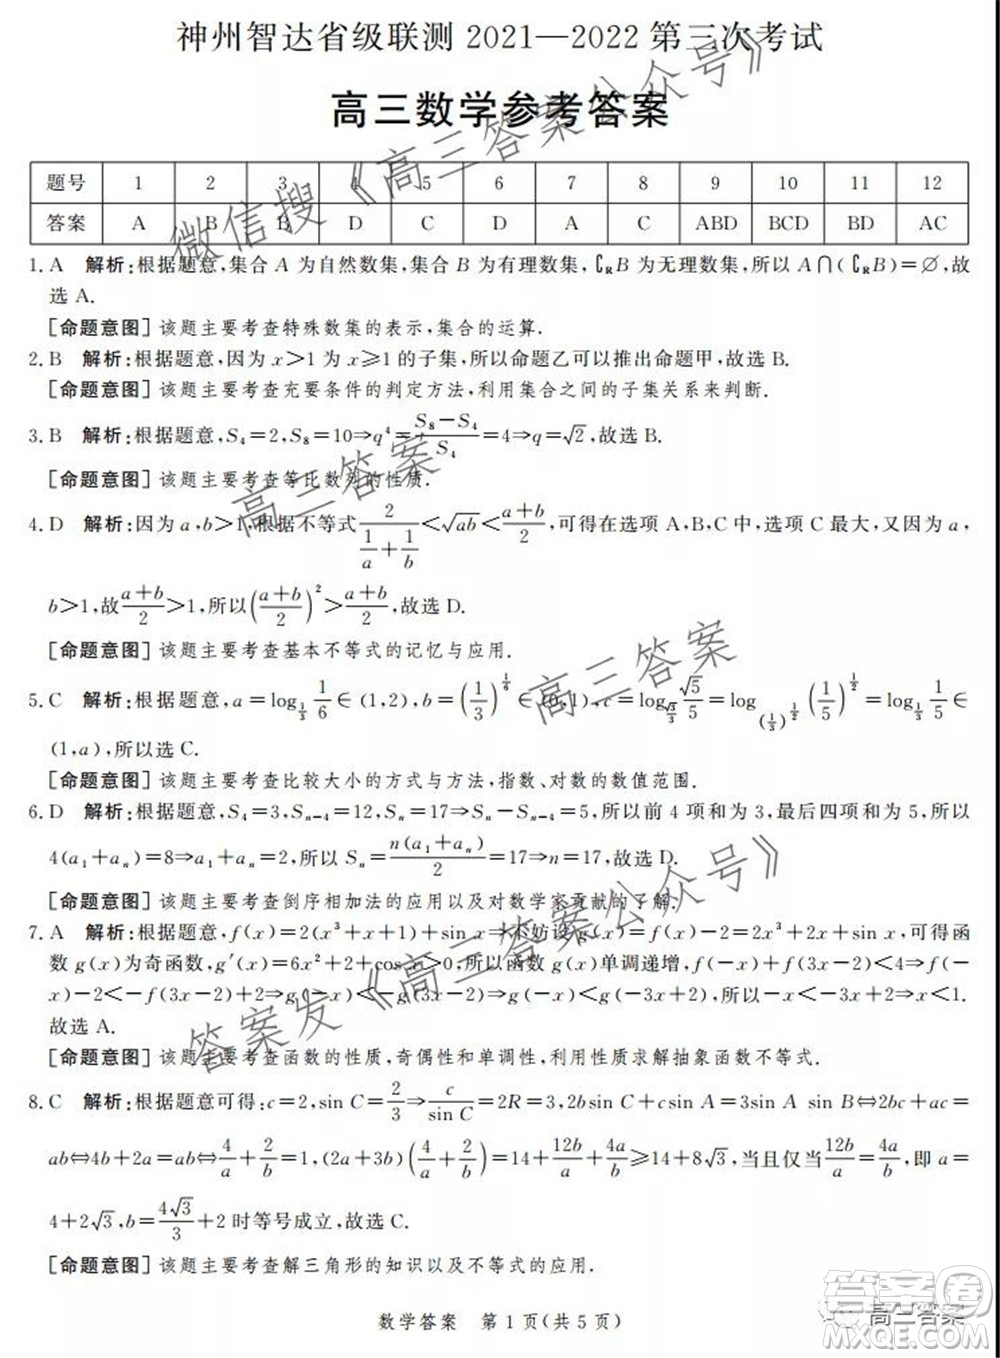 神州智达省级联测 2021—2022 第三次考试
高三数学参考答案
题号 1 2 3 4 5 6 7 8 9 10 11 12
答案 A B B D C D A C ABD BCD BD AC
1. A 解析:根据题意,集合 A 为自然数集,集合 B 为有理数集,∁RB 为无理数集,所以 A∩(∁RB)=∅,故
选 A.
[命题意图] 该题主要考查特殊数集的表示,集合的运算.
2. B 解析:根据题意,因为 x>1 为 x≥1 的子集,所以命题乙可以推出命题甲,故选 B.
[命题意图] 该题主要考查充要条件的判定方法,利用集合之间的子集关系来判断.
3. B 解析:根据题意,S₄=2,S₈=10⇒q⁴=(S₈-S₄)/S₄=4⇒q=√2,故选 B.
[命题意图] 该题主要考查等比数列的性质.
4. D 解析:因为 a,b>1,根据不等式 2/(1/a+1/b)<√ab<(a+b)/2,可得在选项 A,B,C 中,选项 C 最大,又因为 a,
b>1,故(a+b)/2>1,所以((a+b)/2)²>(a+b)/2,故选 D.
[命题意图] 该题主要考查基本不等式的记忆与应用.
5. C 解析:根据题意,a=log_{1/3} 1/6∈(1,2),b=(1/3)^{1/6}∈(0,1),c=log_{√3/3} √5/5=log_{(1/3)^{1/2}} (1/5)^{1/2}=log_{1/3} 1/5∈
(1,a),所以选 C.
[命题意图] 该题主要考查比较大小的方式与方法,指数、对数的数值范围.
6. D 解析:根据题意,S₄=3,Sₙ₋₄=12,Sₙ=17⇒Sₙ-Sₙ₋₄=5,所以前 4 项和为 3,最后四项和为 5,所以
4(a₁+aₙ)=8⇒a₁+aₙ=2,所以 Sₙ=n(a₁+aₙ)/2=17⇒n=17,故选 D.
[命题意图] 该题主要考查倒序相加法的应用以及对数学家贡献的了解.
7. A 解析:根据题意,f(x)=2(x³+x+1)+sin x⇒不妨设 g(x)=f(x)-2=2x³+2x+sin x,可得函
数 g(x)为奇函数,g′(x)=6x²+2+cos x>0,所以函数 g(x)单调递增,f(-x)+f(3x-2)<4⇒
f(-x)-2<-f(3x-2)+2⇒g(-x)<-g(3x-2)⇒g(-x)<g(-3x+2)⇒-x<-3x+2⇒x<1.
故选 A.
[命题意图] 该题主要考查函数的性质,奇偶性和单调性,利用函数性质求解抽象函数不等式.
8. C 解析:根据题意可得:c=2,sin C=2/3⇒c/sin C=2R=3,2bsin C+csin A=3asin A sin B⇔2bc+ac=
ab⇔4b+2a=ab⇔4/a+2/b=1,(2a+3b)(4/a+2/b)=14+12b/a+4a/b≥14+8√3,当且仅当12b/a=4a/b,即 a=
4+2√3,b=4√3/3+2 时等号成立,故选 C.
[命题意图] 该题主要考查解三角形的知识以及不等式的应用.
数学答案 第 1 页(共 5 页)
微信搜《高三答案公众号》
高三答案
高三答案
答案发《高三答案公众号》
高三答案
答案圈
MXQE.COM